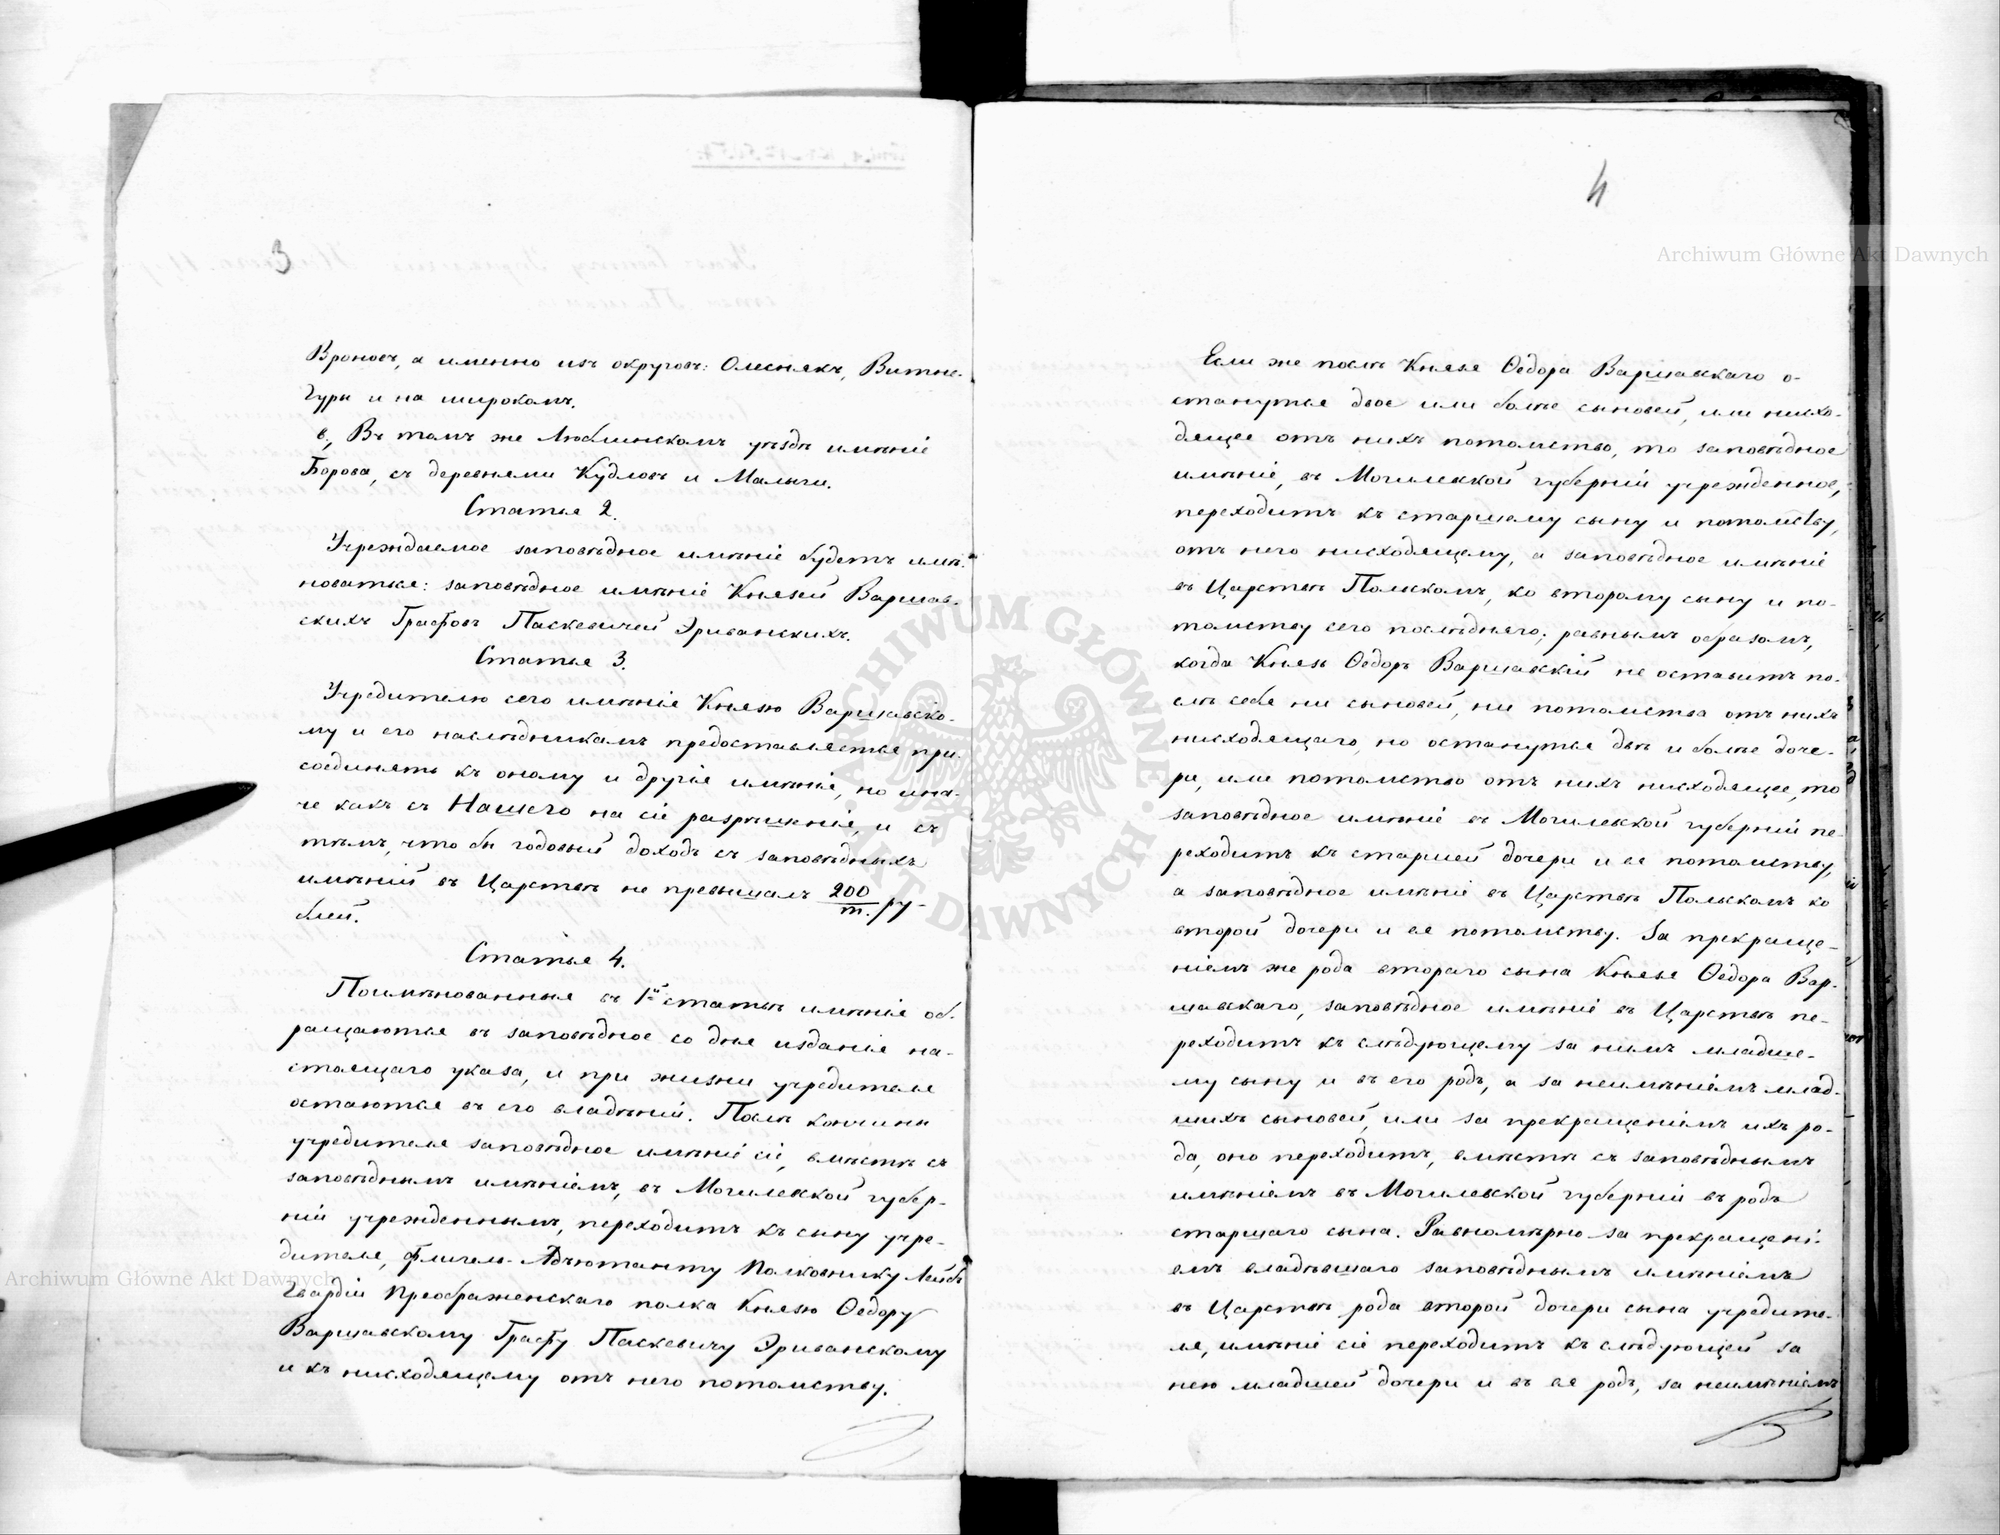 3
Вроновъ, а именно изъ округовъ: Олеснякъ, Витне-
Гуры и на широкомъ.
в, Въ томъ же Люблинскомъ уѣздѣ имѣніе
Борова, съ деревнями Кудловъ и Малычи.
Статья 2.
Учреждаемое заповѣдное имѣніе будетъ име-
новаться: заповѣдное имѣніе Князей Варшав-
скихъ Графовъ Паскевичей Эриванскихъ.
Статья 3.
Учредителю сего имѣнія Князю Варшавско-
му и его наслѣдникамъ предоставляется при-
соединять къ оному и другія имѣнія, но ина-
че какъ съ Нашего на сіе разрѣшенія, и съ
тѣмъ, что бы годовый доходъ съ заповѣдныхъ
имѣній въ Царствѣ не превышалъ 200/т. ру-
блей.
Статья 4.
Поимѣнованныя въ 1й статьѣ имѣнія об-
ращаются въ заповѣдное со дня изданія на-
стоящаго указа, и при жизни учредителя
остаются въ его владѣніи. Послѣ кончины
учредителя заповѣдное имѣніе сіе, вмѣстѣ съ
заповѣднымъ имѣніемъ, въ Могилевской губер-
ніи учрежденнымъ, переходитъ къ сыну учре-
дителя, Флигель-Адъютанту Полковнику Лейбъ
Гвардіи Преображенскаго полка Князю Ѳедору
Варшавскому Графу Паскевичу Эриванскому
и къ нисходящему отъ него потомству.
4
Если же послѣ Князя Ѳедора Варшавскаго о-
станутся двое или болѣе сыновей, или нисхо-
дящее отъ нихъ потомство, то заповѣдное
имѣніе, въ Могилевской губерніи учрежденное,
переходитъ къ старшему сыну и потомству,
отъ него нисходящему, а заповѣдное имѣніе
въ Царствѣ Польскомъ, ко второму сыну и по-
томству сего послѣдняго; равнымъ образомъ,
когда Князь Ѳедоръ Варшавскій не оставитъ по-
слѣ себя ни сыновей, ни потомства отъ нихъ
нисходящаго, но останутся двѣ и болѣе доче-
ри, или потомство отъ нихъ нисходящее, то
заповѣдное имѣніе въ Могилевской губерніи пе-
реходитъ къ старшей дочери и ея потомству,
а заповѣдное имѣніе въ Царствѣ Польскомъ ко
второй дочери и ея потомству. За прекраще-
ніемъ же рода втораго сына Князя Ѳедора Вар-
шавскаго, заповѣдное имѣніе въ Царствѣ пе-
реходитъ къ слѣдующему за нимъ младше-
му сыну и въ его родъ, а за неимѣніемъ млад-
шихъ сыновей, или за прекращеніемъ ихъ ро-
да, оно переходитъ, вмѣстѣ съ заповѣднымъ
имѣніемъ въ Могилевской губерніи въ родъ
старшаго сына. Равномѣрно за прекращені-
емъ владѣвшаго заповѣднымъ имѣніемъ
въ Царствѣ рода второй дочери сына учредите-
ля, имѣніе сіе переходитъ къ слѣдующей за
нею младшей дочери и въ ея родъ, за неимѣніемъ
ARCHIWUM GŁÓWNE AKT DAWNYCH
Archiwum Główne Akt Dawnych
Archiwum Główne Akt Dawnych